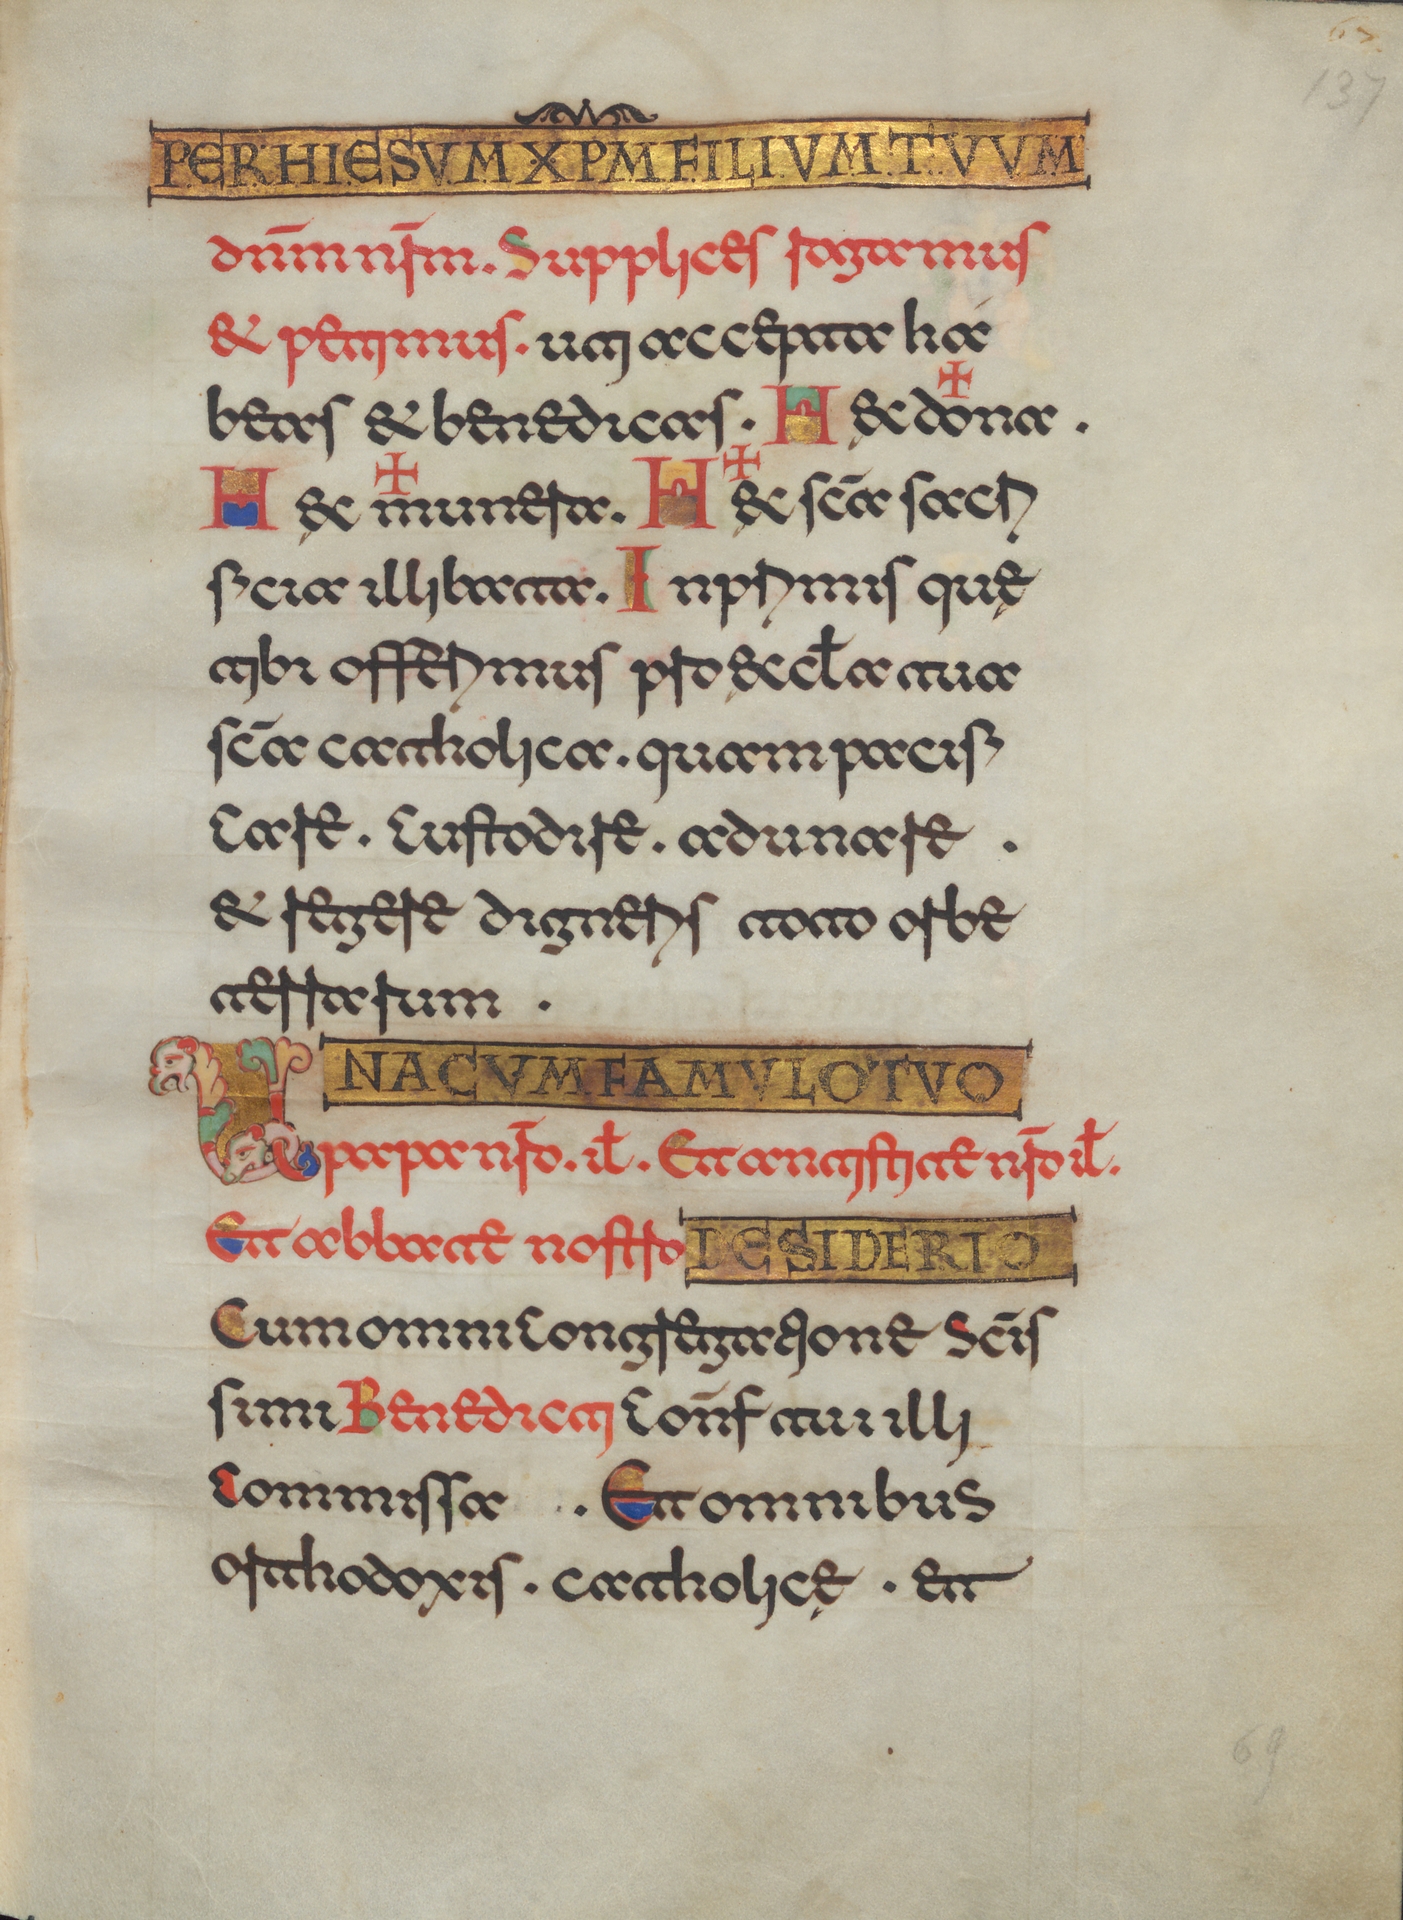 137
PER HIESVM XPM FILIVM TVVM
dn̄m nr̄m. Supplices rogamus
& petimus. uti accepta ha
beas & benedicas. Hęc dona.
Hęc munera. Hęc scā sacri
ficia illibata. Inprimis quę
tibi offerimus pro ęccl̄a tua
scā catholica. quam pacifi
care. Custodire. adunare.
& regere digneris toto orbe
terrarum.
VNA CVM FAMVLO TVO
papa nr̄o. il̄. Et antistite nr̄o il̄.
Et abbate nostro DESIDERIO
Cum omni Congregatione Scīs
simi Benedicti Conf̄ tui illi
Commissa. Et omnibus
orthodoxis. catholicę. et
69